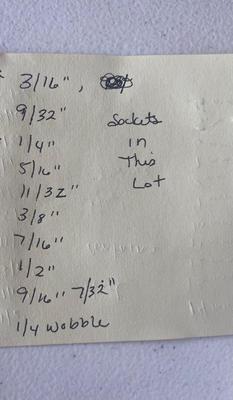 3/16",
9/32"
1/4"
5/16"
11/32"
3/8"
7/16"
1/2"
9/16" 7/32"
1/4 wobble
Sockets
in
This
Lot